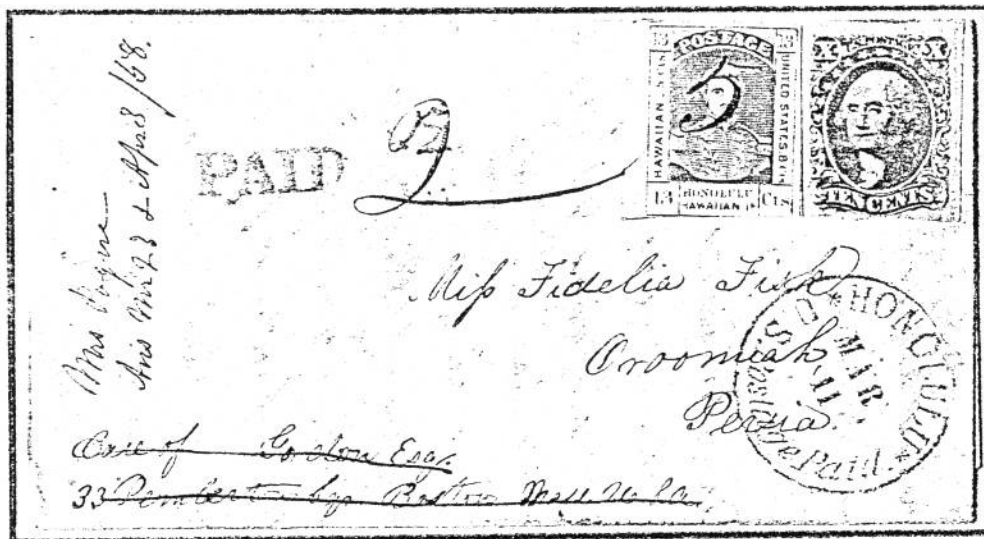 Mrs Pogue
Ans Mr 23 & April /58.
PAID
2
13 POSTAGE 13
HAWAIIAN 5 CTS
UNITED STATES 8 Cts
5
HONOLULU
HAWAIIAN Is
13 Cts
X U.S. POSTAGE X
TEN CENTS
Miss Fidelia Fisk
Oroomiah
Persia.
HONOLULU
MAR
11
U.S. Postage Paid.
Care of Gordon Esqr.
33 Pemberton Sqr Boston Mass U.S.A.